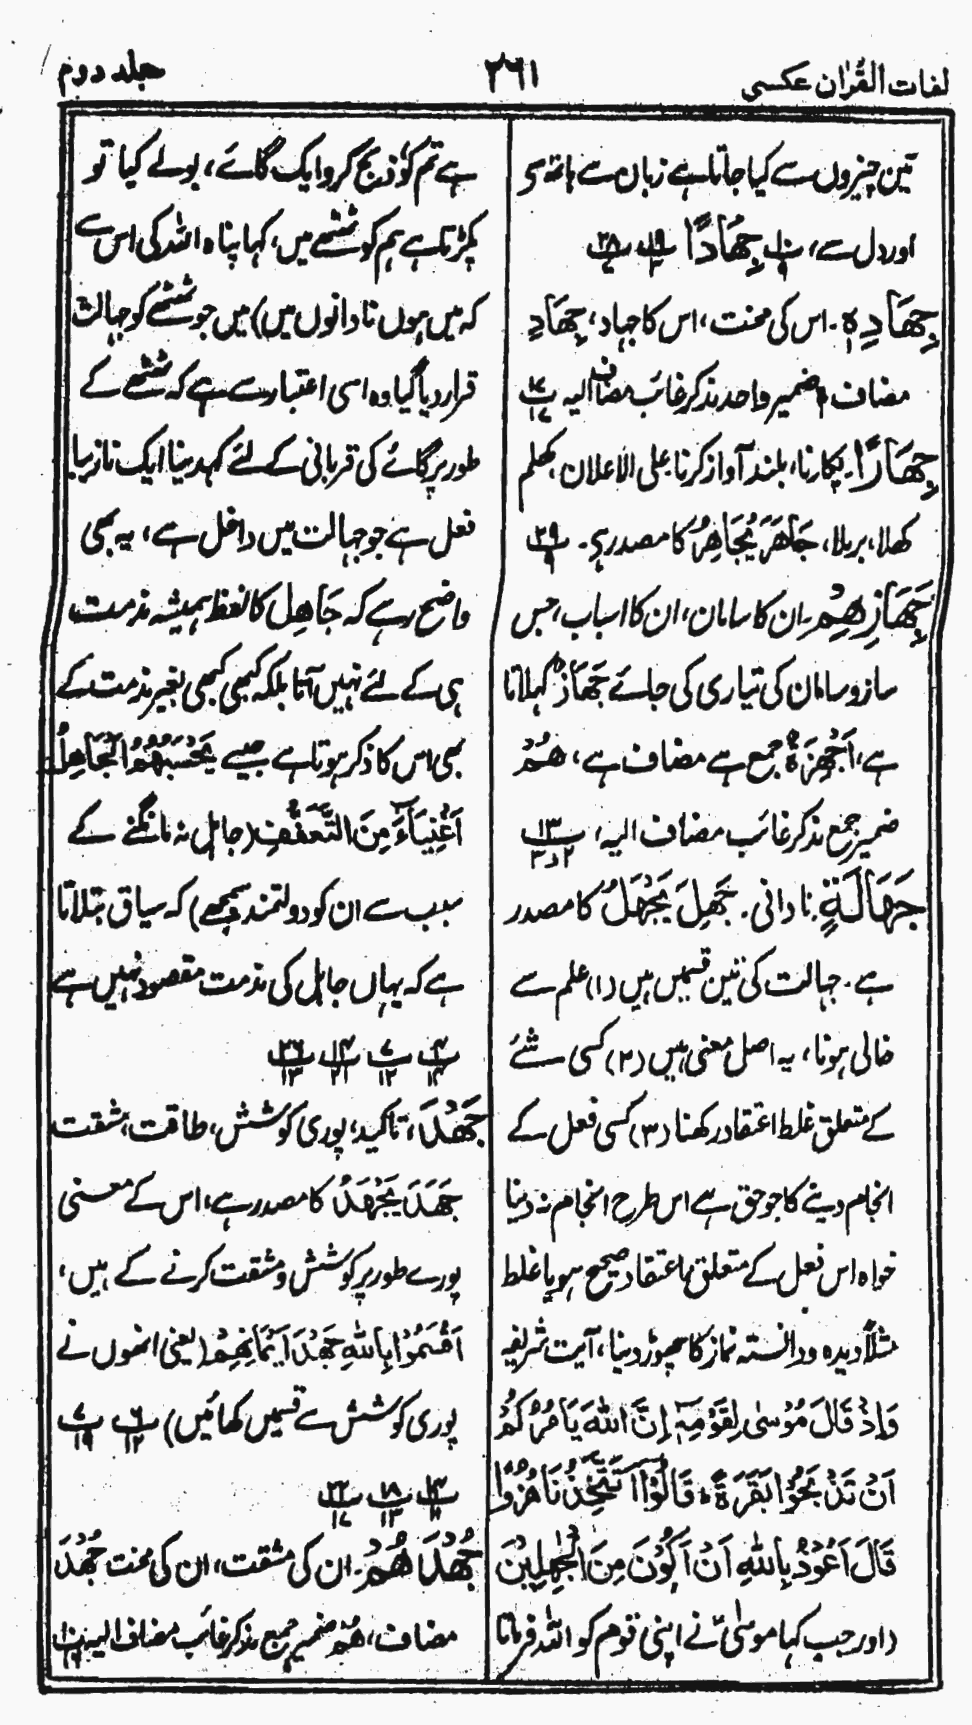 لغات القرٰان عکسی
۲۶۱
جلد دوم
تین چیزوں سے کیا جاتا ہے زبان سے ہاتھ سے
اور دل سے، جِهَادًا
جِهَادِهٖ۔ اس کی محنت، اس کا جہاد، جِهَادِ
مضاف ہٖ ضمیر واحد مذکر غائب مضاف الیہ ۱۷
جِهَارًا۔ پکارنا، بلند آواز کرنا، علی الاعلان، کھلم
کھلا، برملا، جَاهَرَ يُجَاهِرُ کا مصدر ہے۔ ۲۹
جَهَازِهِمْ۔ ان کا سامان، ان کا اسباب، جس
ساز و سامان کی تیاری کی جائے جَهَازٌ کہلاتا
ہے، اَجْهِزَةٌ جمع ہے مضاف ہے، هُمْ
ضمیر جمع مذکر غائب مضاف الیہ، ۱۳
جَهَالَةٍ۔ نادانی۔ جَهِلَ يَجْهَلُ کا مصدر
ہے۔ جہالت کی تین قسمیں ہیں (۱) علم سے
خالی ہونا، یہ اصل معنی ہیں (۲) کسی شئے
کے متعلق غلط اعتقاد رکھنا (۳) کسی فعل کے
انجام دینے کا جو حق ہے اس طرح انجام نہ دینا
خواہ اس فعل کے متعلق اعتقاد صحیح ہو یا غلط
مثلاً دیدہ و دانستہ نماز کا چھوڑ دینا، آیت شریفہ
وَاِذْ قَالَ مُوْسٰی لِقَوْمِهٖٓ اِنَّ اللّٰهَ يَاْمُرُكُمْ
اَنْ تَذْبَحُوْا بَقَرَةً ؕ قَالُوْٓا اَتَتَّخِذُنَا هُزُوًا
قَالَ اَعُوْذُ بِاللّٰهِ اَنْ اَكُوْنَ مِنَ الْجٰهِلِيْنَ
(اور جب کہا موسٰیؑ نے اپنی قوم کو اللہ فرماتا
ہے تم کو ذبح کرو ایک گائے، بولے کیا تو
پکڑتا ہے ہم کو ٹھٹھے میں، کہا پناہ اللہ کی اس سے
کہ میں ہوں نادانوں میں) میں جو ٹھٹھے کو جہالت
قرار دیا گیا وہ اسی اعتبار سے ہے کہ ٹھٹھے کے
طور پر گائے کی قربانی کے لئے کہہ دینا ایک نازیبا
فعل ہے جو جہالت میں داخل ہے، یہ بھی
واضح رہے کہ جَاهِل کا لفظ ہمیشہ مذمت
ہی کے لئے نہیں آتا بلکہ کبھی کبھی بغیر مذمت کے
بھی اس کا ذکر ہوتا ہے جیسے يَحْسَبُهُمُ الْجَاهِلُ
اَغْنِيَآءَ مِنَ التَّعَفُّفِ (جاہل نہ مانگنے کے
سبب سے ان کو دولتمند سمجھے) کہ سیاق بتلاتا
ہے کہ یہاں جاہل کی مذمت مقصود نہیں ہے
جَهْدَ، تاکید، پوری کوشش، طاقت، مشقت
جَهَدَ يَجْهَدُ کا مصدر ہے، اس کے معنی
پورے طور پر کوشش و مشقت کرنے کے ہیں،
اَقْسَمُوْا بِاللّٰهِ جَهْدَ اَيْمَانِهِمْ (یعنی انھوں نے
پوری کوشش سے قسمیں کھائیں)
جُهْدَهُمْ۔ ان کی مشقت، ان کی محنت جُهْدَ
مضاف، هُمْ ضمیر جمع مذکر غائب مضاف الیہ